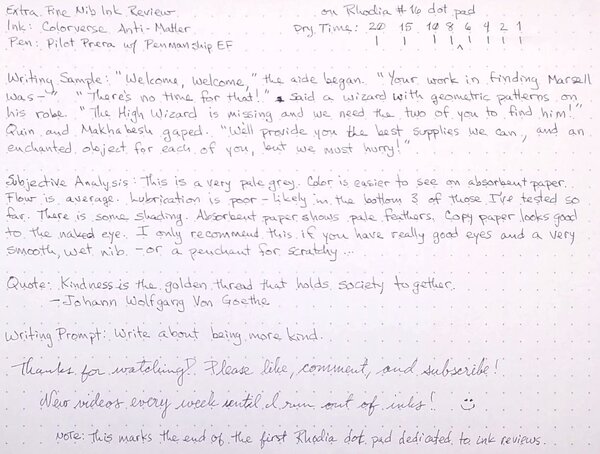 Extra Fine Nib Ink Review on Rhodia #16 dot pad
Ink: Colorverse Anti-Matter Dry Time: 20 15 10 8 6 4 2 1
Pen: Pilot Prera w/ Penmanship EF
Writing Sample: "Welcome, welcome," the aide began. "Your work in finding Marsell
was-" "There's no time for that!" said a wizard with geometric patterns on
his robe. "The High Wizard is missing and we need the two of you to find him!"
Quin and Makhabesh gaped. "We'll provide you the best supplies we can, and an
enchanted object for each of you, but we must hurry!"
Subjective Analysis: This is a very pale grey. Color is easier to see on absorbent paper.
Flow is average. Lubrication is poor - likely in the bottom 3 of those I've tested so
far. There is some shading. Absorbent paper shows pale feathers. Copy paper looks good
to the naked eye. I only recommend this if you have really good eyes and a very
smooth, wet nib. -or a penchant for scratchy...
Quote: Kindness is the golden thread that holds society together.
-Johann Wolfgang Von Goethe
Writing Prompt: Write about being more kind.
Thanks for watching! Please like, comment, and subscribe!
New videos every week until I run out of inks!
Note: This marks the end of the first Rhodia dot pad dedicated to ink reviews.